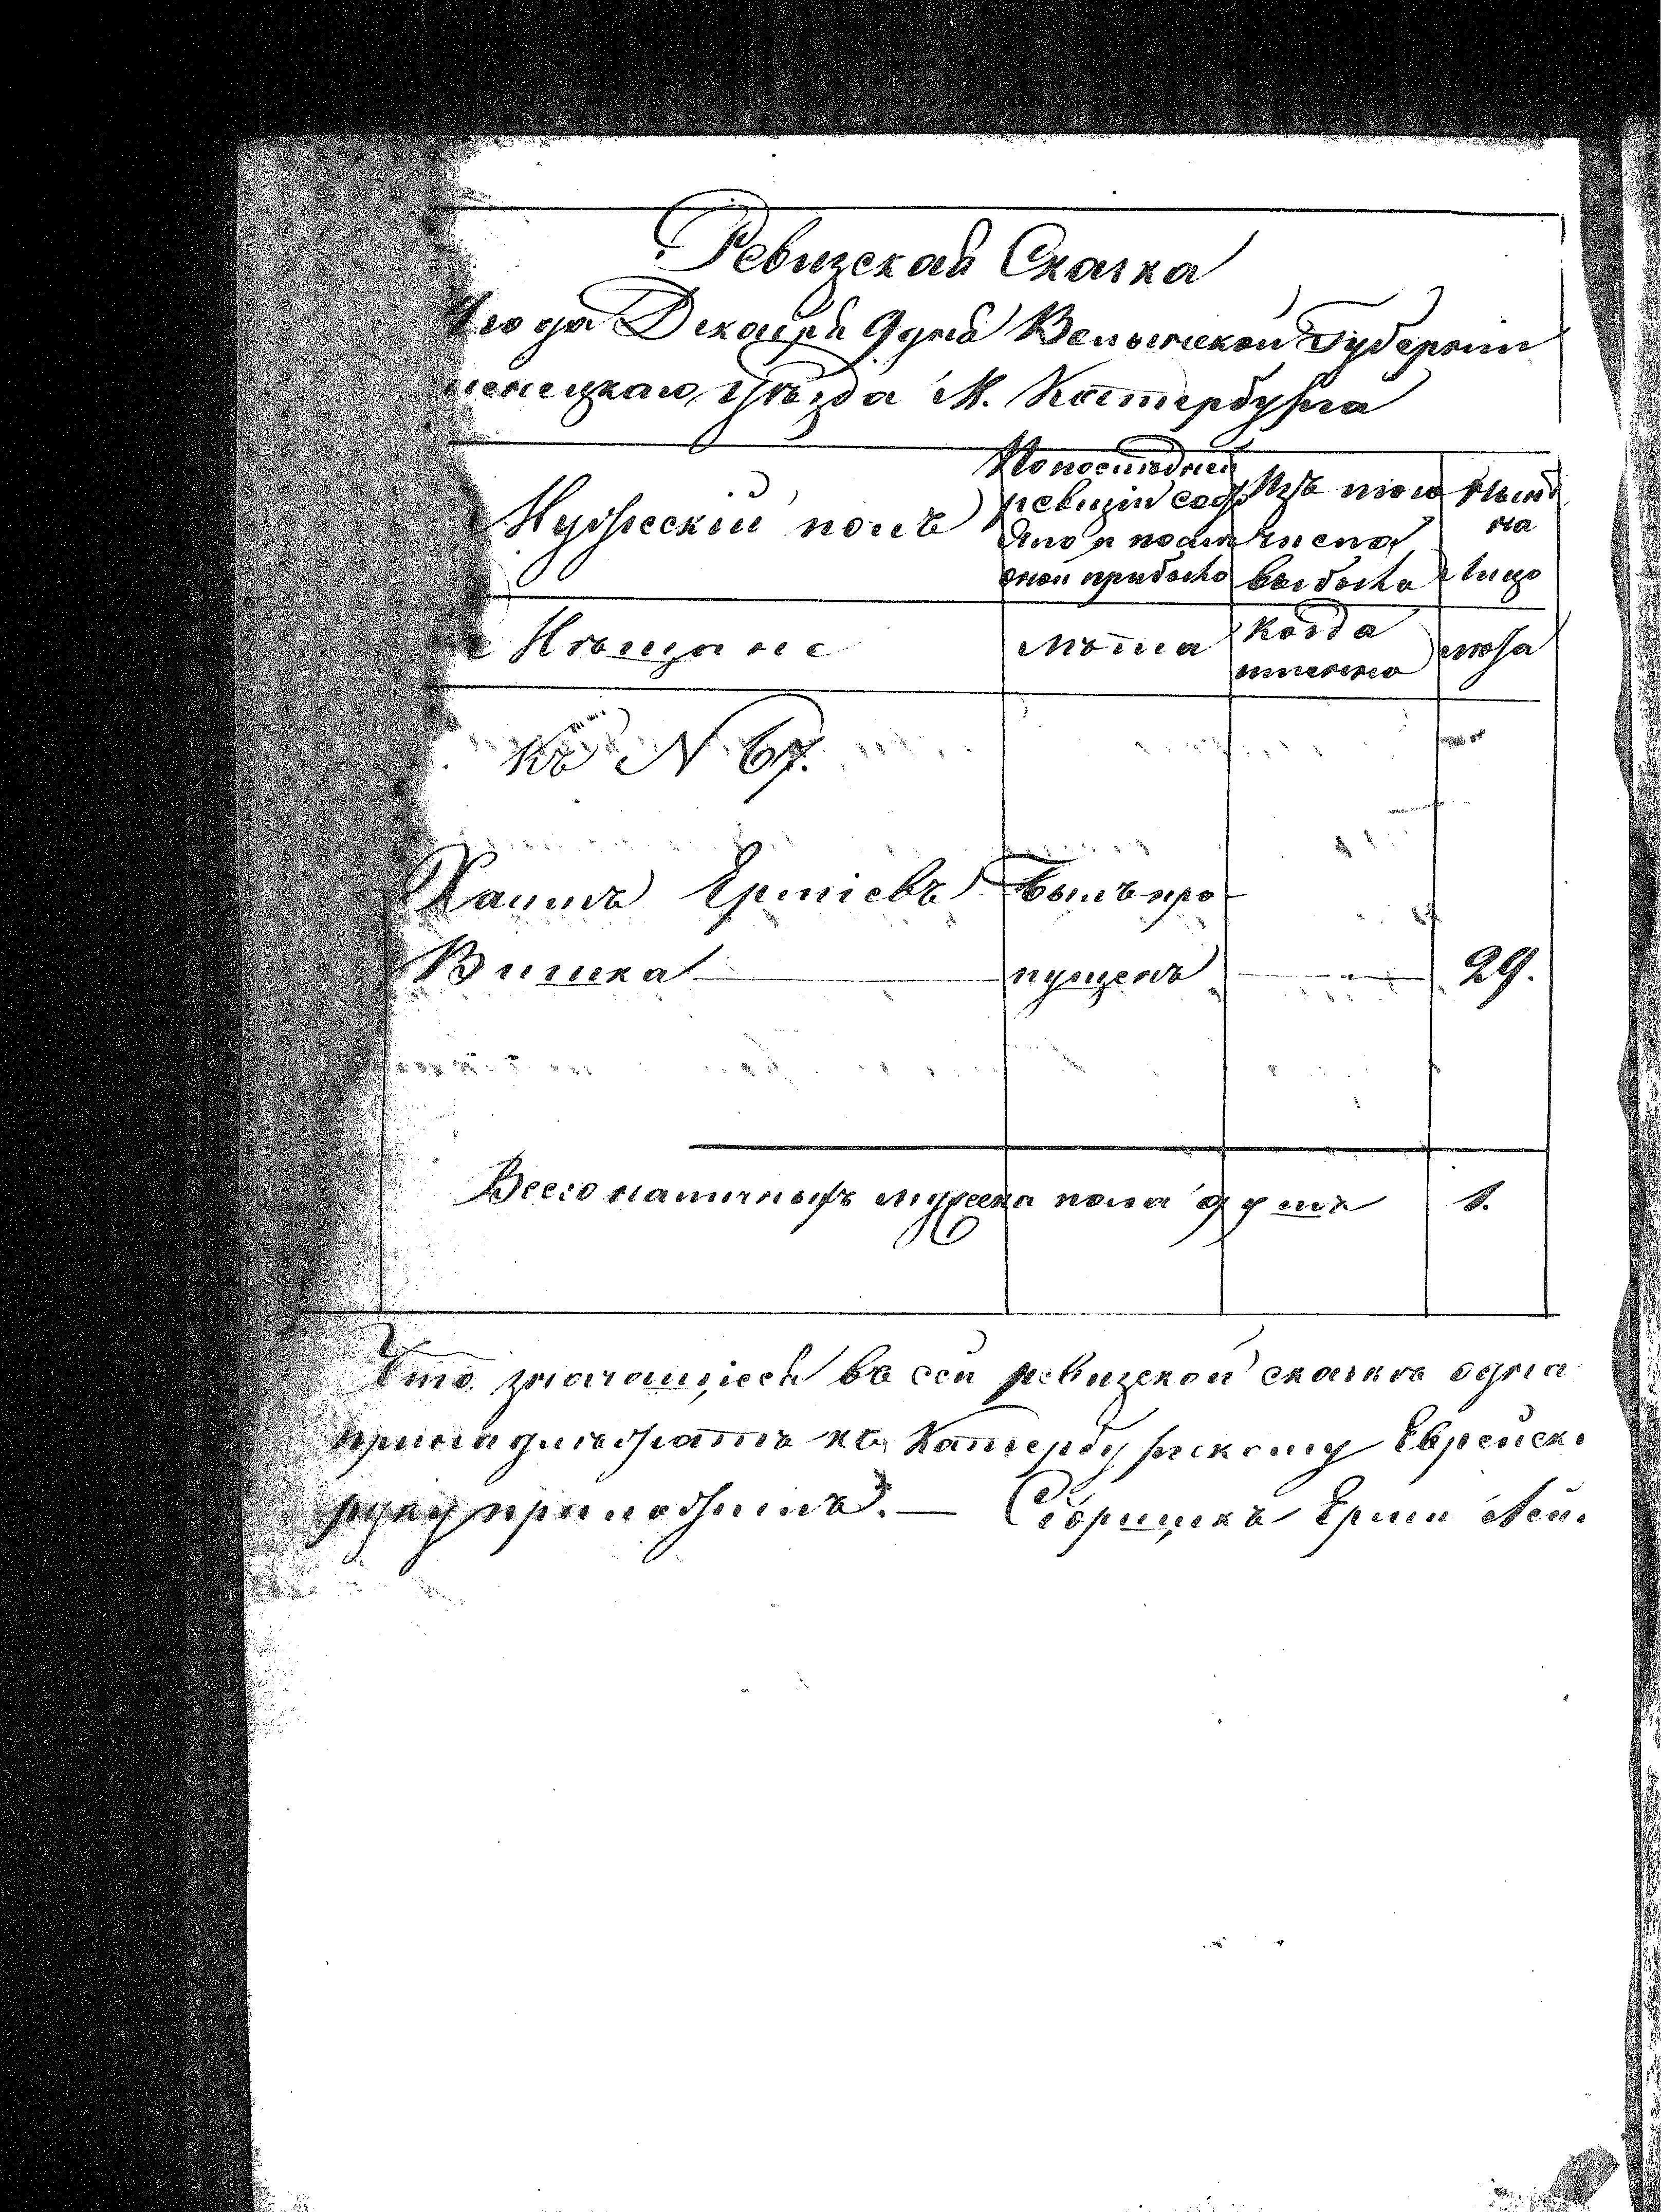 Ревизская Сказка
года Декабря 9 дня Волынской Губернiи
менецкаго уѣзда М. Катербурга
Мужескiй полъ
По последней
ревизiи сос
яло и после
оной прибыло
Изъ того
числа
выбыло
Ныне
на
лицо
Мѣщане
лѣта
Когда
именно
лѣта
Къ N 67.
Хаимъ Ершiевъ Былъ про
Вишка пущенъ 29.
Всего наличныхъ мужеска пола душъ 1.
Что значащiеся въ сей ревизской сказкѣ одна
принадлежатъ къ Катербуржскому Еврейск
руку приложилъ. — Сборщикъ Ерши Лей